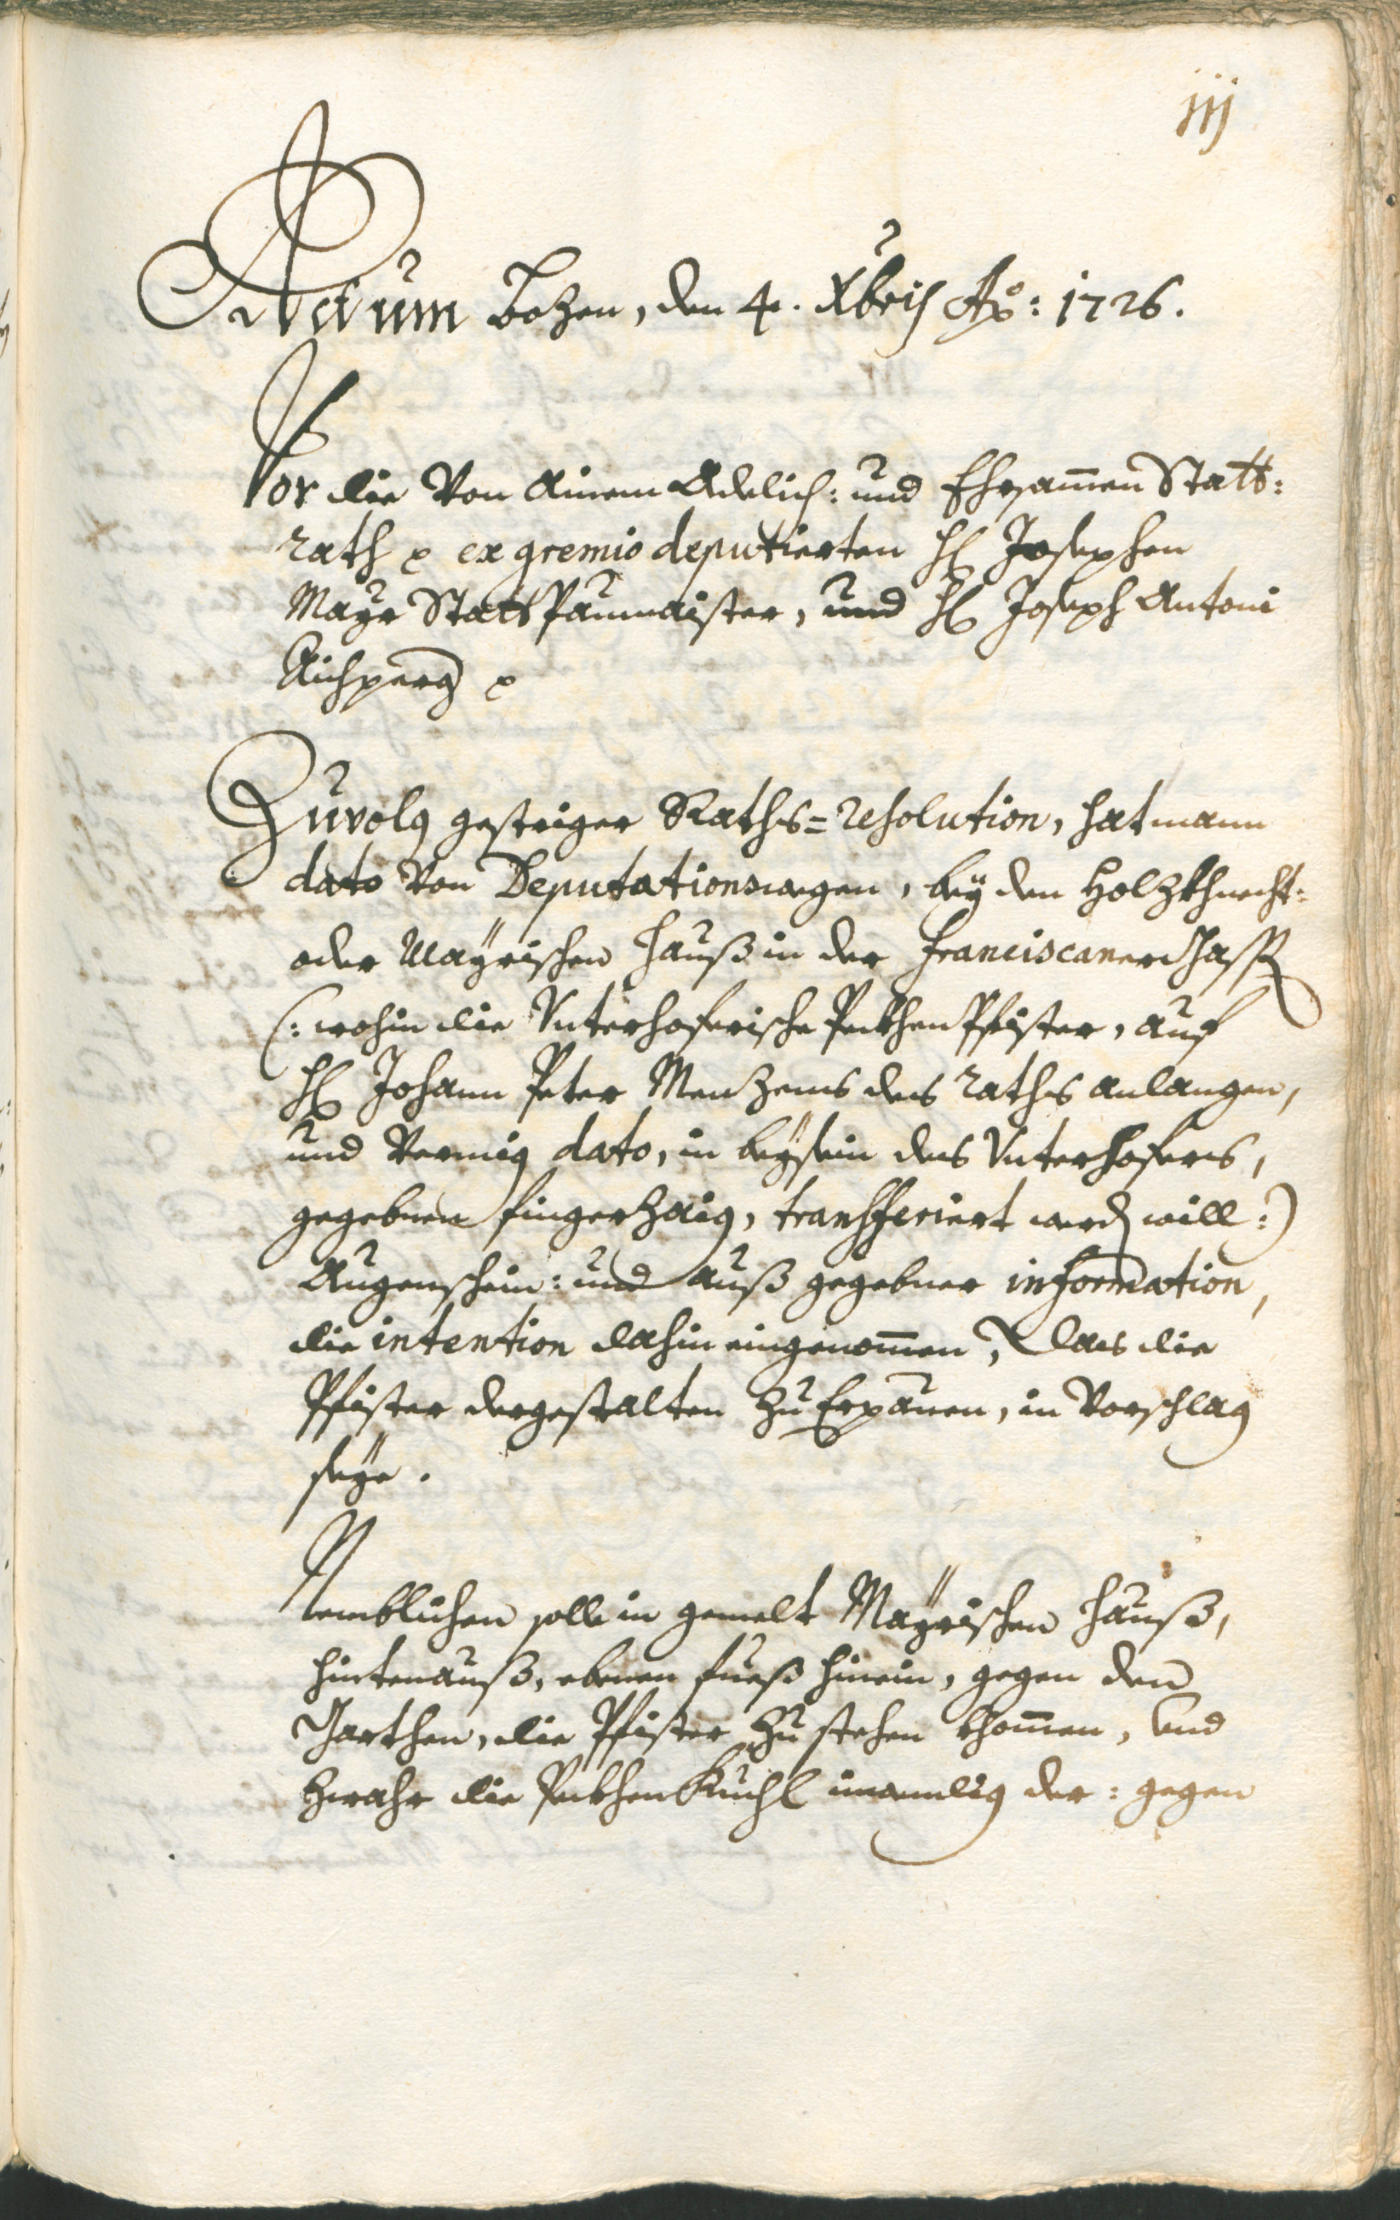 iij
Actum Bozen, den 4. Xbris Ao: 1726.
Vor die Von Ainem Adelich: und Ehrsamen Statt:
rath ex gremio deputierten H Josephen
Mayr Statt Paumaister, und H Joseph Antoni
Aichperg
Zuvolg gestriger Raths=resolution, hat mann
dato von Deputationswegen, bey den Holzkhnecht:
oder Mayrischen Hauß in der Franciscaner Gaß
(: wohin die Unterhoferische Pekhen Pfister, auf
H Johann Peter Menzens des raths anlangen,
und Vermig dato, in beysein des Unterhofers,
gegebnen fingerzaig, transferiert werden will :)
Augenschein: und auß gegebner information,
die intention dahin eingenomen, Das die
Pfister dergestalten zu Erpauen, in Vorschlag
seye.
Nemblichen solle in gemelt Mayrischen Hauß,
hintenauß, ebenen fueß hinein, gegen den
Garthen, die Pfister zu stehen khomen, Und
zwahr die Pekhen Kuchl inwendig der: gegen